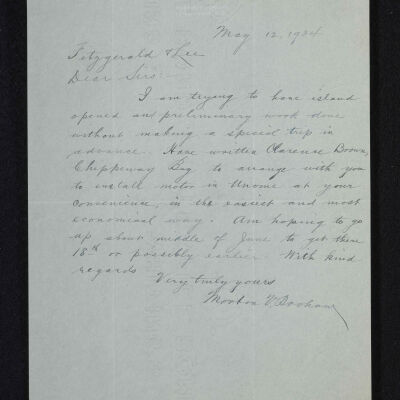 May 12, 1924
Fitzgerald & Lee
Dear Sirs:
I am trying to have island
opened and preliminary work done
without making a special trip in
advance. Have written Clarence Brown,
Chippeway Bay to arrange with you
to install motor in at your
convenience, in the easiest and most
economical way. Am hoping to go
up about middle of June to get there
18th or possibly earlier. With kind
regards
Very truly yours
Morton V.